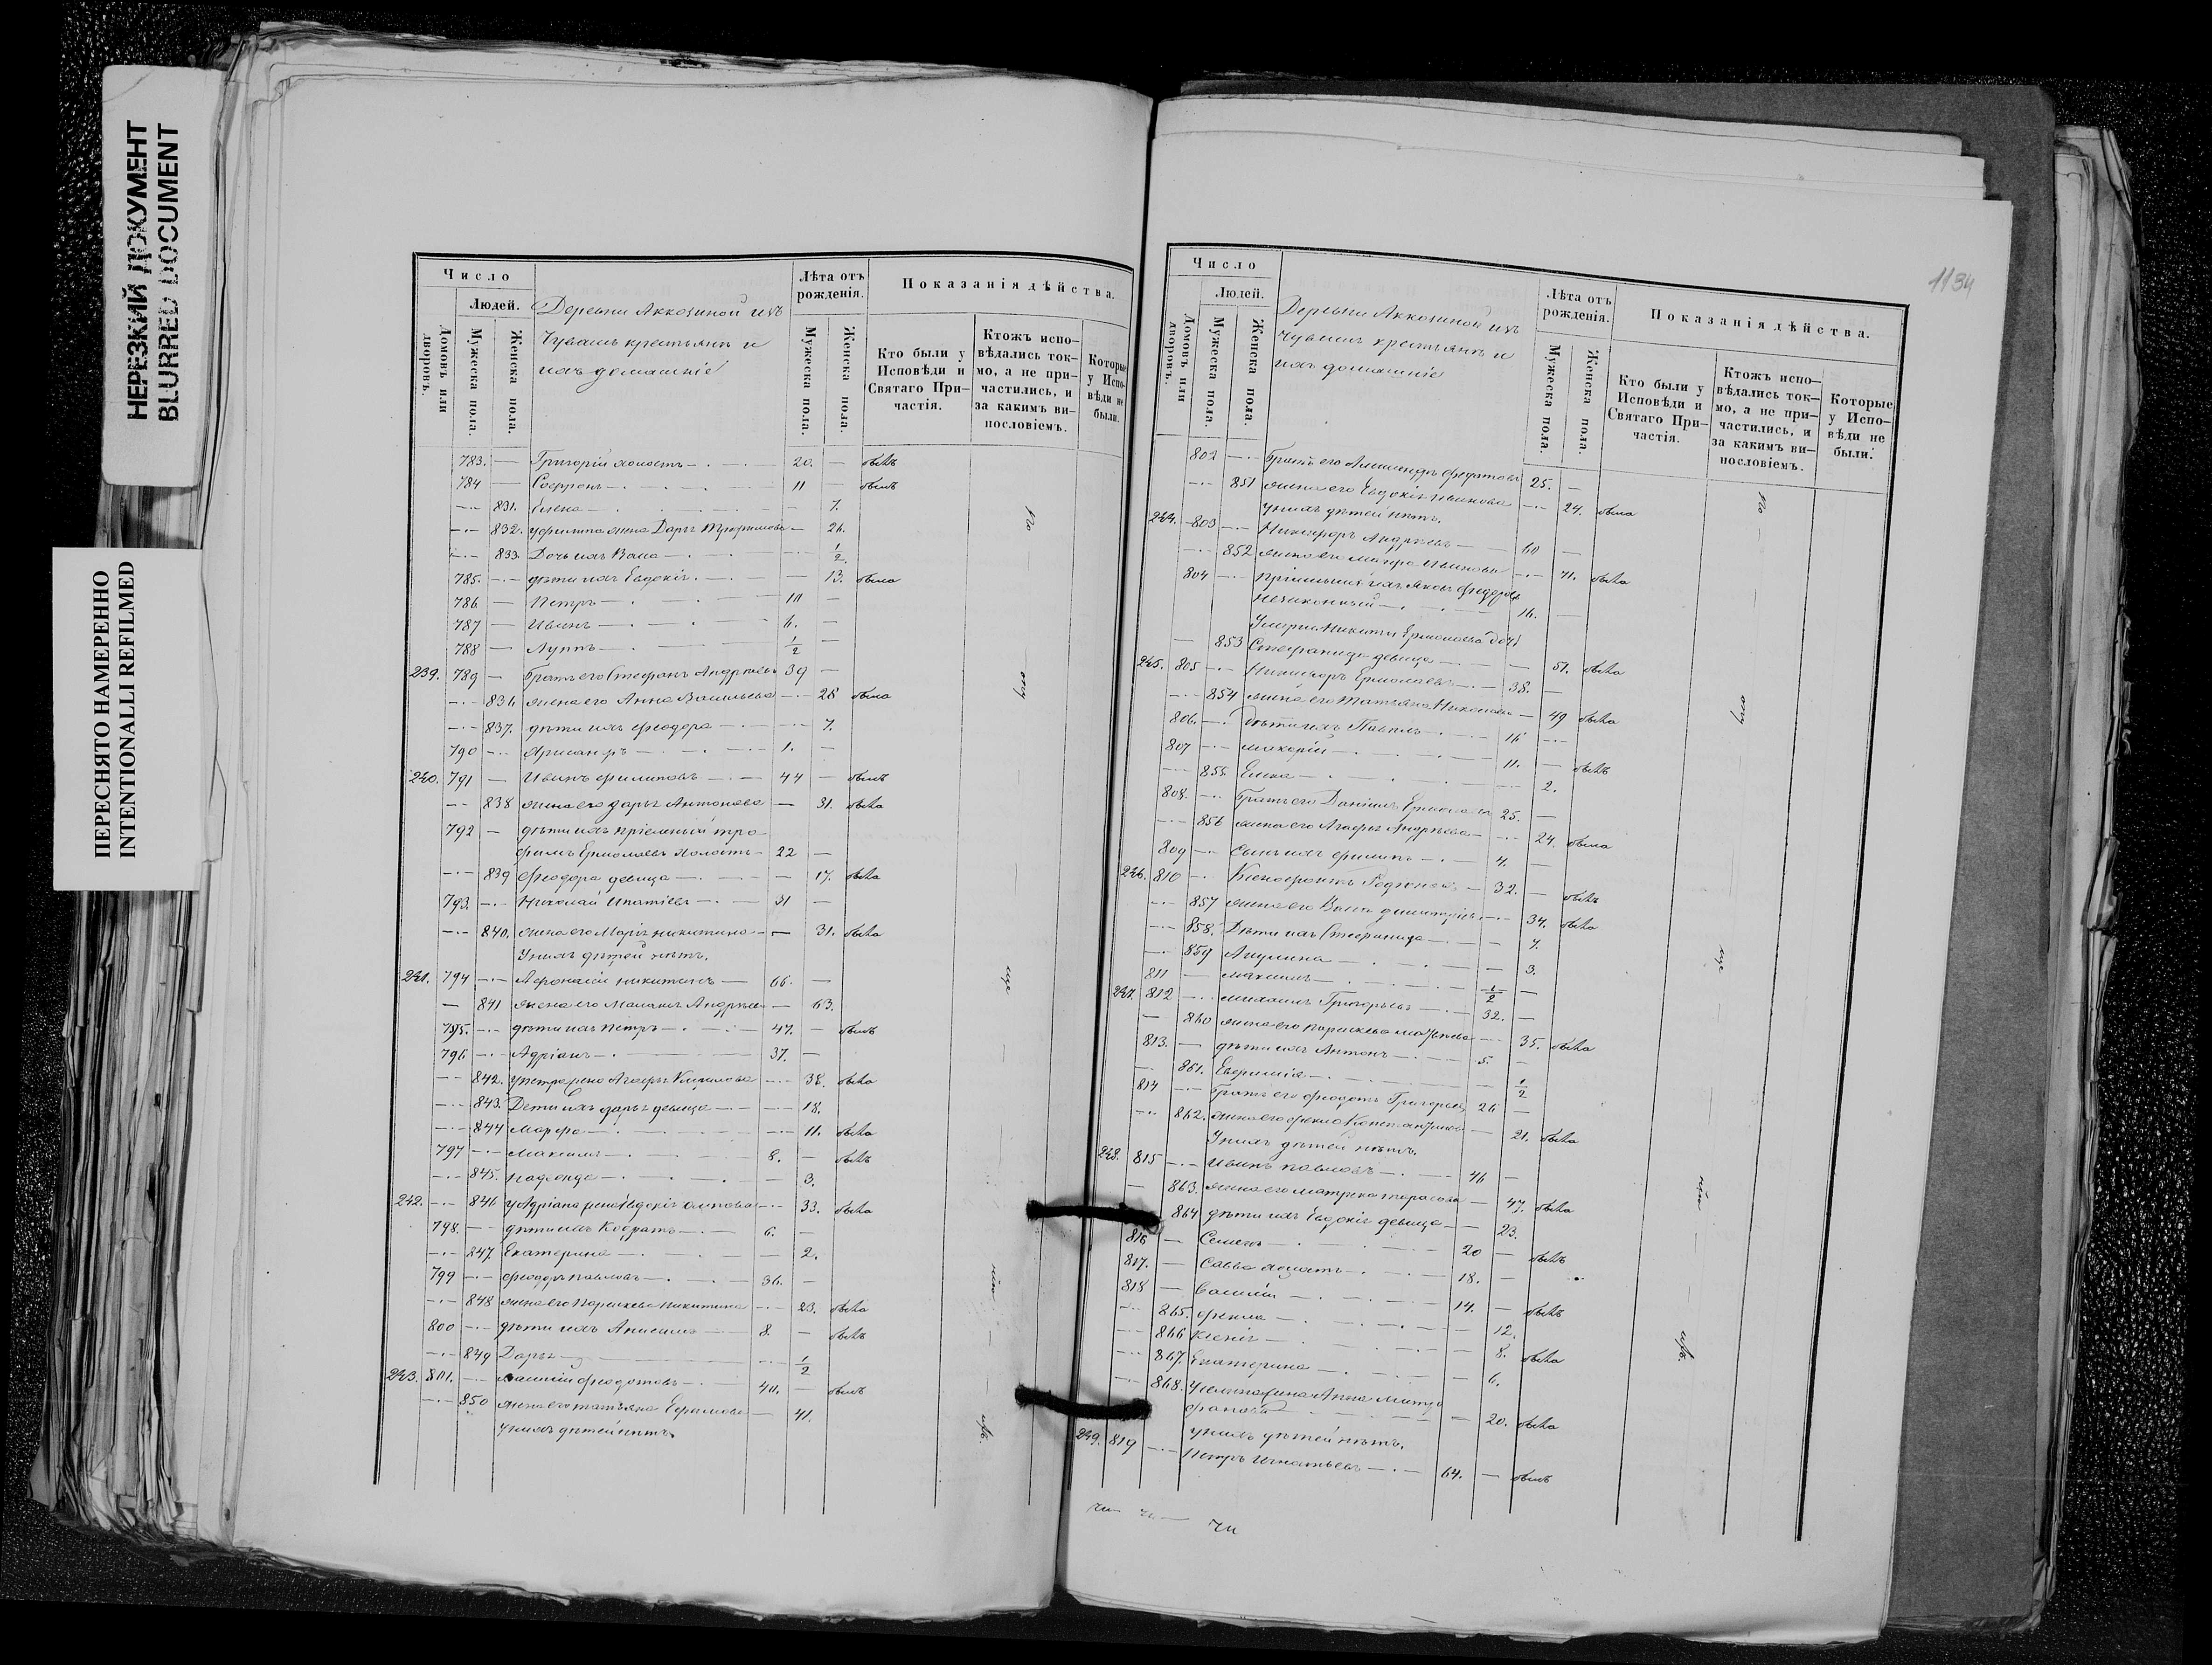 НЕРЕЗКИЙ ДОКУМЕНТ
BLURRED DOCUMENT
ПЕРЕСНЯТО НАМЕРЕННО
INTENTIONALLI REFILMED
Число
Людей.
Домовъ или дворовъ.
Мужеска пола.
Женска пола.
Деревни Аккозиной изъ
Чувашъ крестьянъ и
ихъ домашніе
Лѣта отъ рожденія.
Мужеска пола.
Женска пола.
Показанія дѣйства.
Кто были у Исповѣди и Святаго Причастія.
Ктожъ исповѣдались токмо, а не причастились, и за какимъ винословіемъ.
Которые у Исповѣди не были.
783. — Григорій холостъ — 20. — былъ
784 — Софронъ — 11 — былъ
831. Елена — 7.
832. Филиппа жена Дарья — 26.
833. Дочь ихъ Васса — 1/2
785. дѣти ихъ Евдокія — 13. была
786. — Петръ — 10 —
787 — Иванъ — 6. —
788 — Луппъ — 1/2
239. 789 — Братъ его Стефанъ Андреевъ 39 —
836 жена его Анна Васильева — 28 была
837. дѣти ихъ Феодора — 7.
790 — 1. —
240. 791 — Иванъ Филиповъ — 44 — былъ
838 жена его Дарья Антонова — 31. была
792 — дѣти ихъ пріемный Тро-
фимъ Ермолаевъ холостъ — 22 —
839 Феодора девица — 17. была
793. Николай Игнатіевъ — 31 —
840. жена его Марія Никитина — 31. была
У нихъ дѣтей нѣтъ.
241. 794 — Афонасій Никитинъ — 66. —
841 жена его Маланья Андреева — 63.
795. дѣти ихъ Петръ — 47. — былъ
796 — Адріанъ — 37. —
842. у Петра жена Агафья — 38. была
843. Дети ихъ Дарья девица — 18.
844 Марфа — 11. была
797 — Максимъ — 8. — былъ
845. Надежда — 3.
242. 846 у Адріана жена Евдокія — 33. была
798. дѣти ихъ Кодратъ — 6. —
847. Екатерина — 2.
799 — Феодоръ Павловъ — 36. —
848 жена его Параскева Никитина — 23. была
800 — дѣти ихъ Анисимъ — 8. — былъ
849 Дарья — 1/2
243. 801. Василій Федотовъ — 40. — былъ
850 жена его Татьяна Ефимова — 41.
У нихъ дѣтей нѣтъ.
По
сему
1134
Число
Людей.
Домовъ или дворовъ.
Мужеска пола.
Женска пола.
Деревни Аккозиной изъ
Чувашъ крестьянъ и
ихъ домашніе
Лѣта отъ рожденія.
Мужеска пола.
Женска пола.
Показанія дѣйства.
Кто были у Исповѣди и Святаго Причастія.
Ктожъ исповѣдались токмо, а не причастились, и за какимъ винословіемъ.
Которые у Исповѣди не были.
802 — Братъ его Александръ Федотовъ 25. —
851 жена его Евдокія Иванова — 24. была
У нихъ дѣтей нѣтъ.
244. 803 — Никифоръ Андреевъ — 60 —
852 жена его Иванова — 71. была
804 — ихъ Яковъ Федоровъ
незаконный — 16. —
Умершаго Никиты Ермолаева дочь
853 Стефанида девица — 51. была
245. 805 — Никифоръ Ермолаевъ — 38. —
854 жена его Татьяна Николаева — 49 была
806. дѣти ихъ Павелъ — 16
807 — Макарій — 11. — былъ
855. Елена — 2.
808. Братъ его Даніилъ Ермолаевъ 25. —
856 жена его Агафья Андреева — 24. была
809 — Сынъ ихъ Филипъ — 4. —
246. 810 — Ксенофонтъ Родіоновъ — 32. — былъ
857 жена его Васса — 34. была
858. Дѣти ихъ Стефанида — 7.
859 Акулина — 3.
811 — Максимъ — 1/2 —
247. 812 — Михаилъ Григорьевъ — 32. —
860 жена его Параскева Матвѣева — 35. была
813. — дѣти ихъ Антонъ — 5. —
861. Евфимія — 1/2
814 — Братъ его Феодотъ Григорьевъ 26 —
862. жена его Фекла Константинова — 21. была
У нихъ дѣтей нѣтъ.
248. 815 — Иванъ Павловъ — 46 —
863. жена его Матрена Тарасова — 47. была
864 дѣти ихъ Евдокія девица — 23.
816 — Семенъ — 20 — былъ
817. — Савва холостъ — 18. —
818 — Василій — 14. — былъ
865. Фекла — 12.
866 Ксенія — 8. была
867. Екатерина — 6.
868. у Семена жена Анна Митро-
фанова — 20. была
У нихъ дѣтей нѣтъ.
249. 819 — Петръ Игнатьевъ — 64. — былъ
По